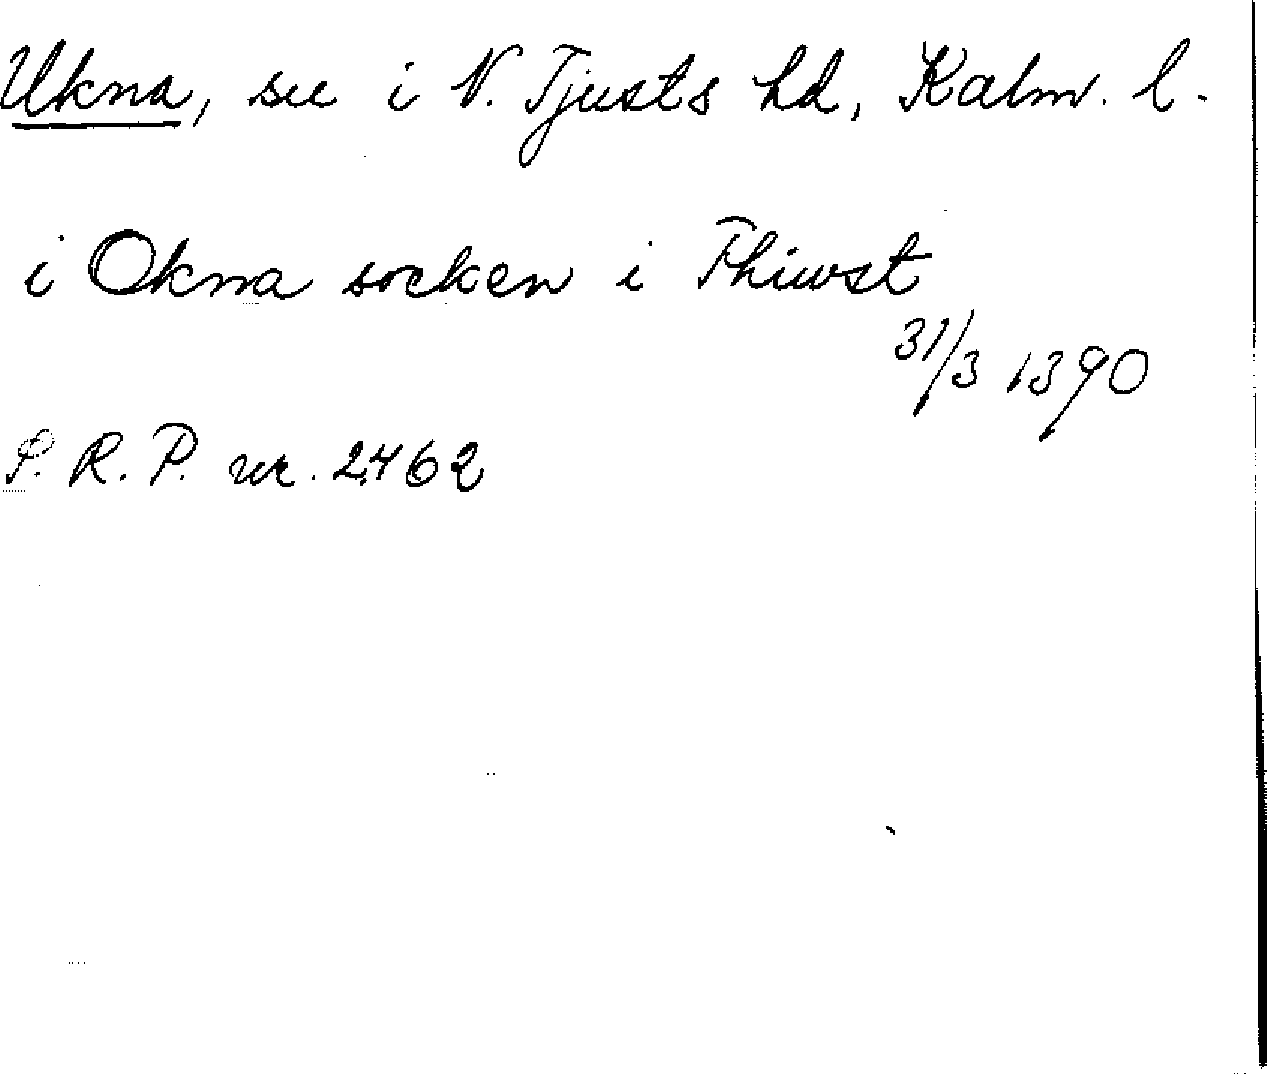 Ukna, sn i N. Tjusts hd, Kalm. l.
i Okna socken i Thiwst
31/3 1390
S. R. P. nr. 2462